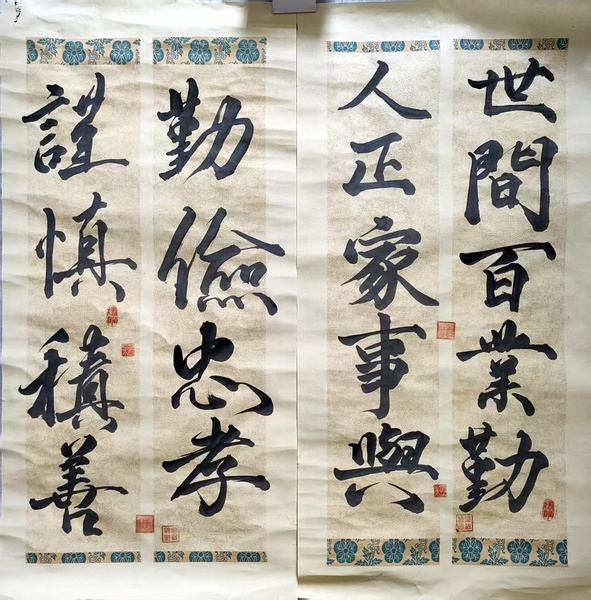 世間百業勤
人正家事興
勤儉忠孝
謹慎積善